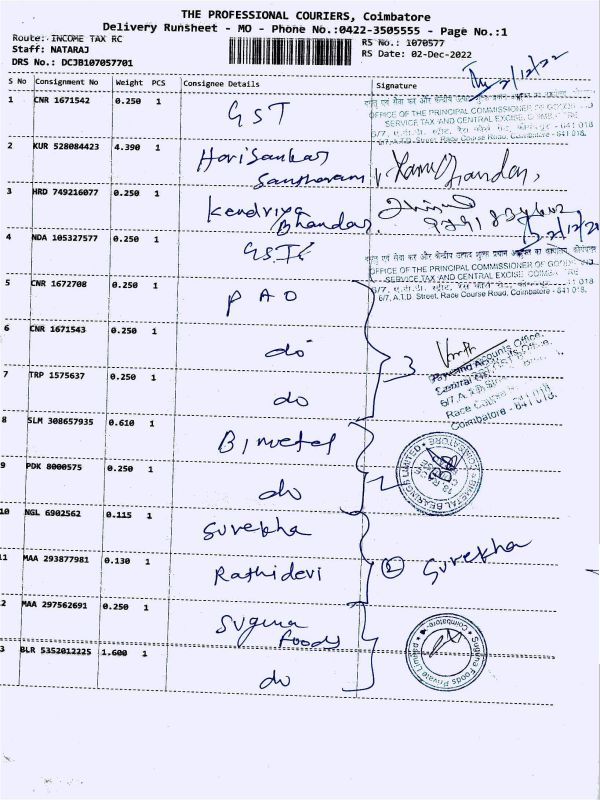 THE PROFESSIONAL COURIERS, Coimbatore
Delivery Runsheet - MO - Phone No.:0422-3505555 - Page No.:1
Route: INCOME TAX RC
RS No.: 1070577
Staff: NATARAJ
RS Date: 02-Dec-2022
DRS No.: DCJB107057701
S No Consignment No Weight PCS Consignee Details Signature
1 CNR 1671542 0.250 1 GST
OFFICE OF THE PRINCIPAL COMMISSIONER OF GOODS
SERVICE TAX AND CENTRAL EXCISE
6/7, A.T.D. Street, Race Course Road, Coimbatore - 641 018
2 KUR 528084423 4.390 1 Harisankar
Santharam
3 HRD 749216077 0.250 1 Kendriya
Bhandar.
4 NDA 105327577 0.250 1 GST
OFFICE OF THE PRINCIPAL COMMISSIONER OF GOODS
SERVICE TAX AND CENTRAL EXCISE
6/7, A.T.D. Street, Race Course Road, Coimbatore - 641 018.
5 CNR 1672708 0.250 1 PAO
6 CNR 1671543 0.250 1 do
3
7 TRP 1575637 0.250 1 do
Race Course
Coimbatore - 641 018.
8 SLM 308657935 0.610 1 Bimetal
9 PDK 8000575 0.250 1 do
2
BIMETAL BEARINGS LIMITED
COIMBATORE
10 NGL 6902562 0.115 1 Surekha
2 Surekha
11 MAA 293877981 0.130 1 Rathidevi
2 MAA 297562691 0.250 1 Suguna
foods
Suguna Foods Private Limited
Coimbatore
3 BLR 5352012225 1.600 1 do